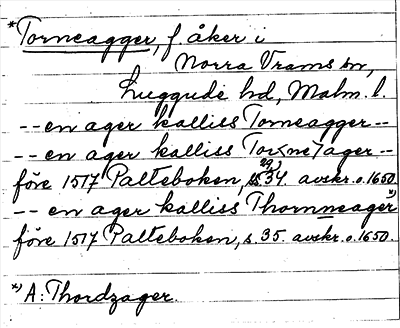 *Torneagger, f. åker i
Norra Vrams sn,
Luggude hd, Malm. l.
-- en ager kalliss Torneagger --
-- en ager kalliss Tor<ne>ager --
före 1517 Palteboken, s. 34. avskr. o. 1650.
-- en ager kalliss Thornneager *)
före 1517 Palteboken, s. 35. avskr. o. 1650.
*) A: Thordzager.